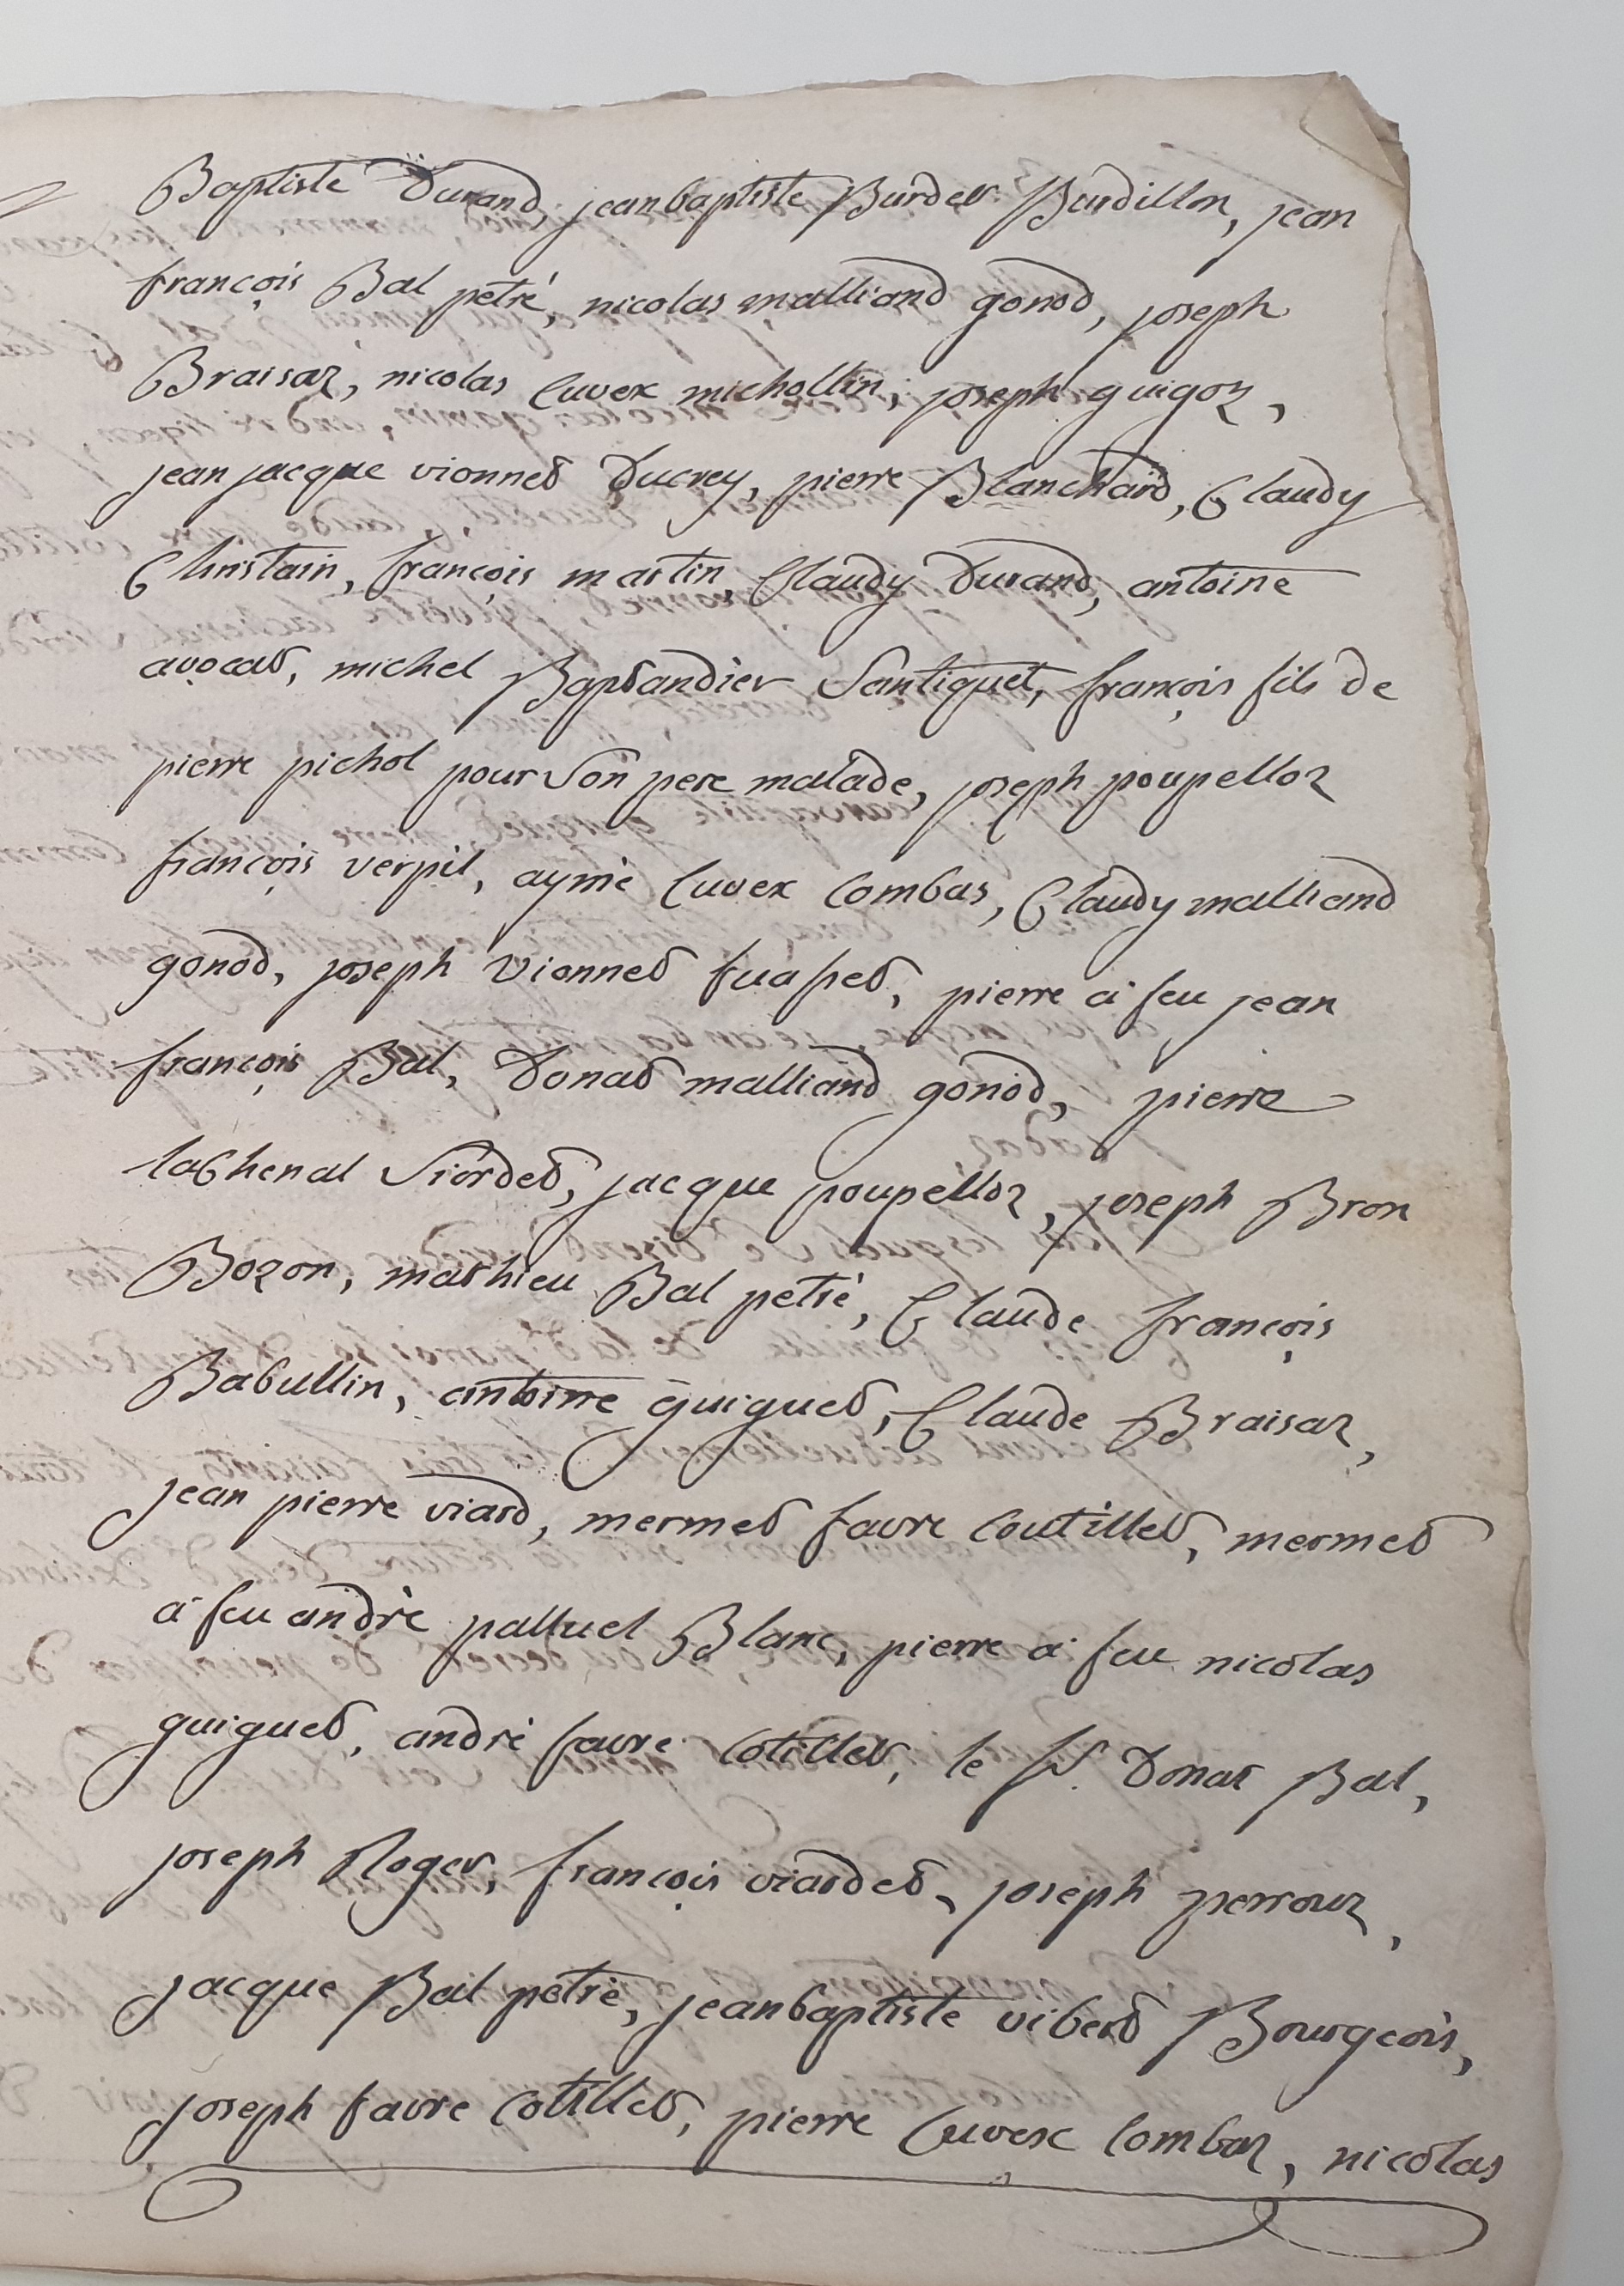 Baptiste Durand, jeanbaptiste Burdet Burdillon, jean
françois Bal petré, nicolas malliand gonod, joseph
Braisaz, nicolas Cuvex michollin, joseph guigoz,
jean jacque vionnet Ducrey, pierre Blanchard, Claudy
Christain, françois martin, Claudy Durand, antoine
avocat, michel Baptandier Santiquet, françois fils de
pierre pichol pour son pere malade, joseph poupelloz
françois verpil, aymé Cuvex Combaz, Claudy malliand
gonod, joseph vionnet fuasset, pierre à feu jean
françois Bal, Donat malliand gonod, pierre
laChenal Siordet, jacque poupelloz, joseph Bron
Bozon, mathieu Bal petré, Claude françois
Babullin, antoine guiguet, Claude Braisaz,
jean pierre viard, mermet favre Coutillet, mermet
à feu andrè palluel Blanc, pierre à feu nicolas
guiguet, andrè favre Cotillet, le Sr. Donat Bal,
joseph Roger, françois viardet, joseph perrouz,
jacque Bal petré, jeanbaptiste vibert Bourgeois,
joseph favre Cotillet, pierre Cuvex Combaz, nicolas